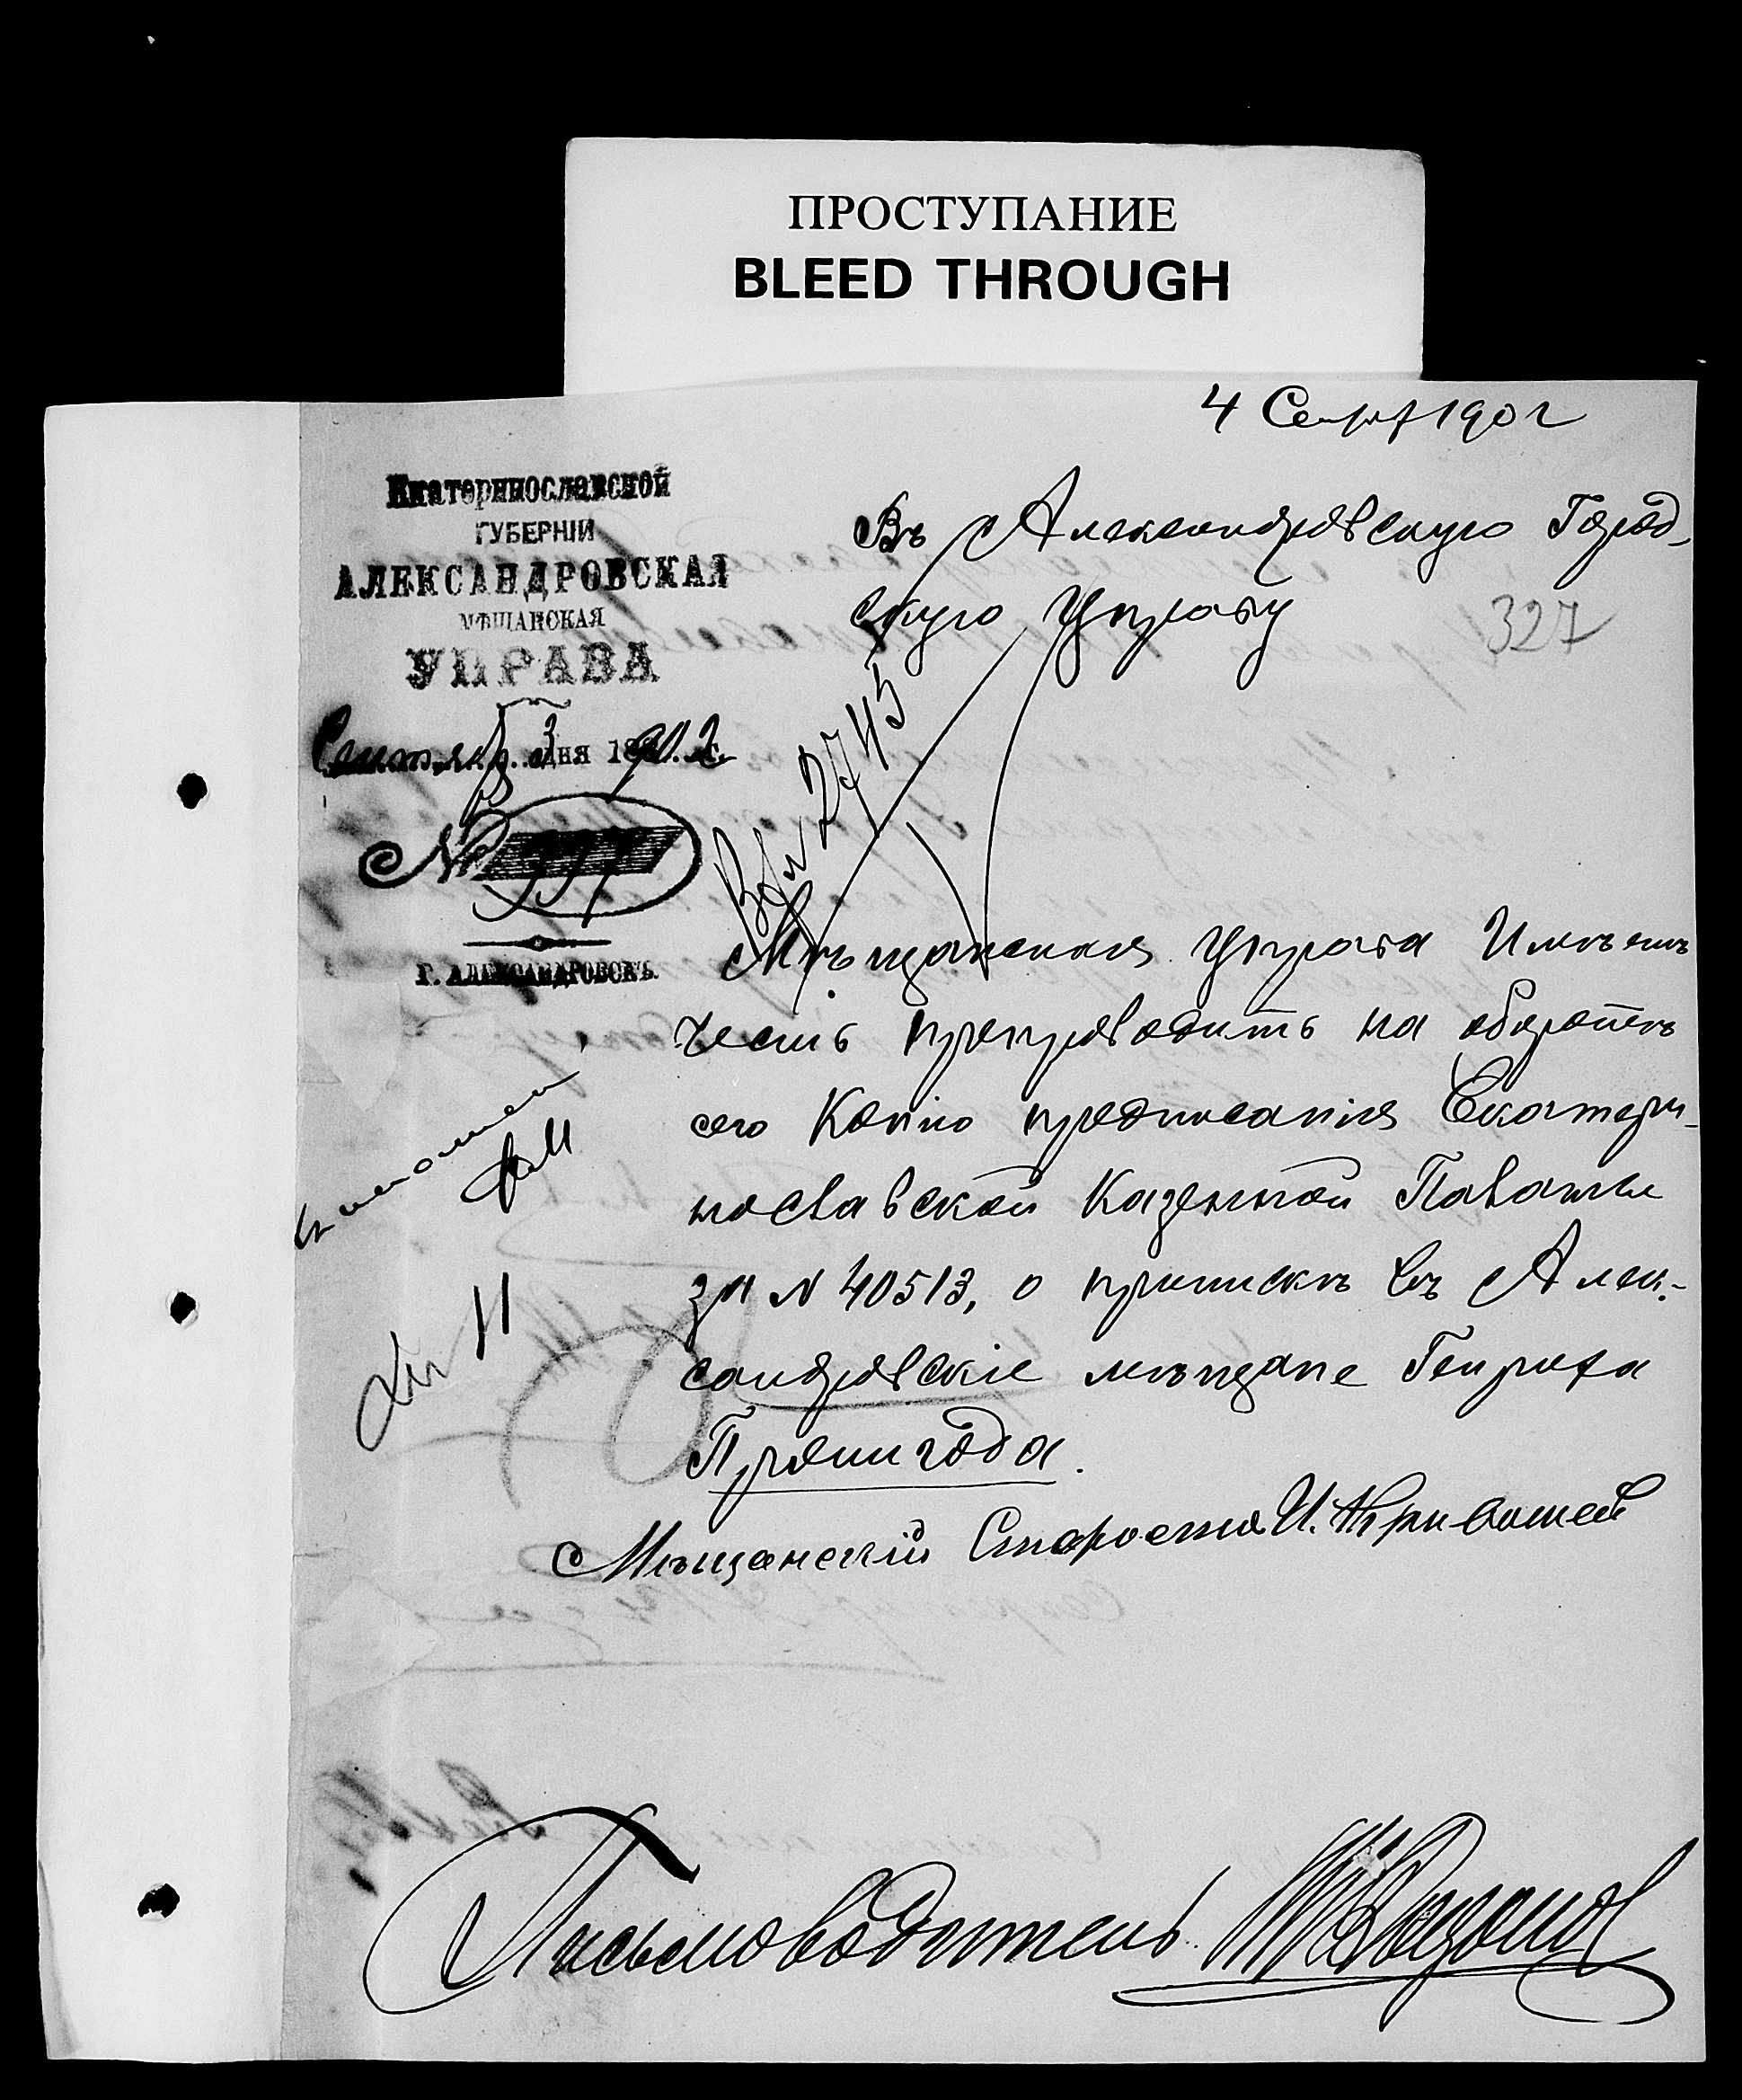 ПРОСТУПАНИЕ
BLEED THROUGH
4 Сент 1902
Екатеринославской
ГУБЕРНІИ
АЛЕКСАНДРОВСКАЯ
МѢЩАНСКАЯ
УПРАВА
Сентября 3 дня 1902 г.
№ 997
Г. АЛЕКСАНДРОВСКЪ.
Въ Александровскую Город-
скую Управу
327
Вх № 2745
Мѣщанская Управа Имѣетъ
честь препроводить на оборотѣ
сего Копію предписанія Екатери-
нославской Казенной Палаты
за № 40513, о припискѣ въ Алек-
сандровскіе мѣщане Генриха
Пронигода.
Мѣщанскій Староста И. Кривошеев
Письмоводитель